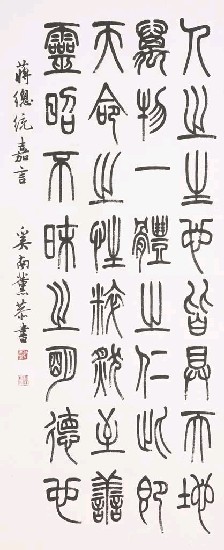 人之生也皆具天地
萬物一體之仁此即
天命之性粹然至善
靈昭不昧之明德也
蔣總統嘉言　奚南薰恭書